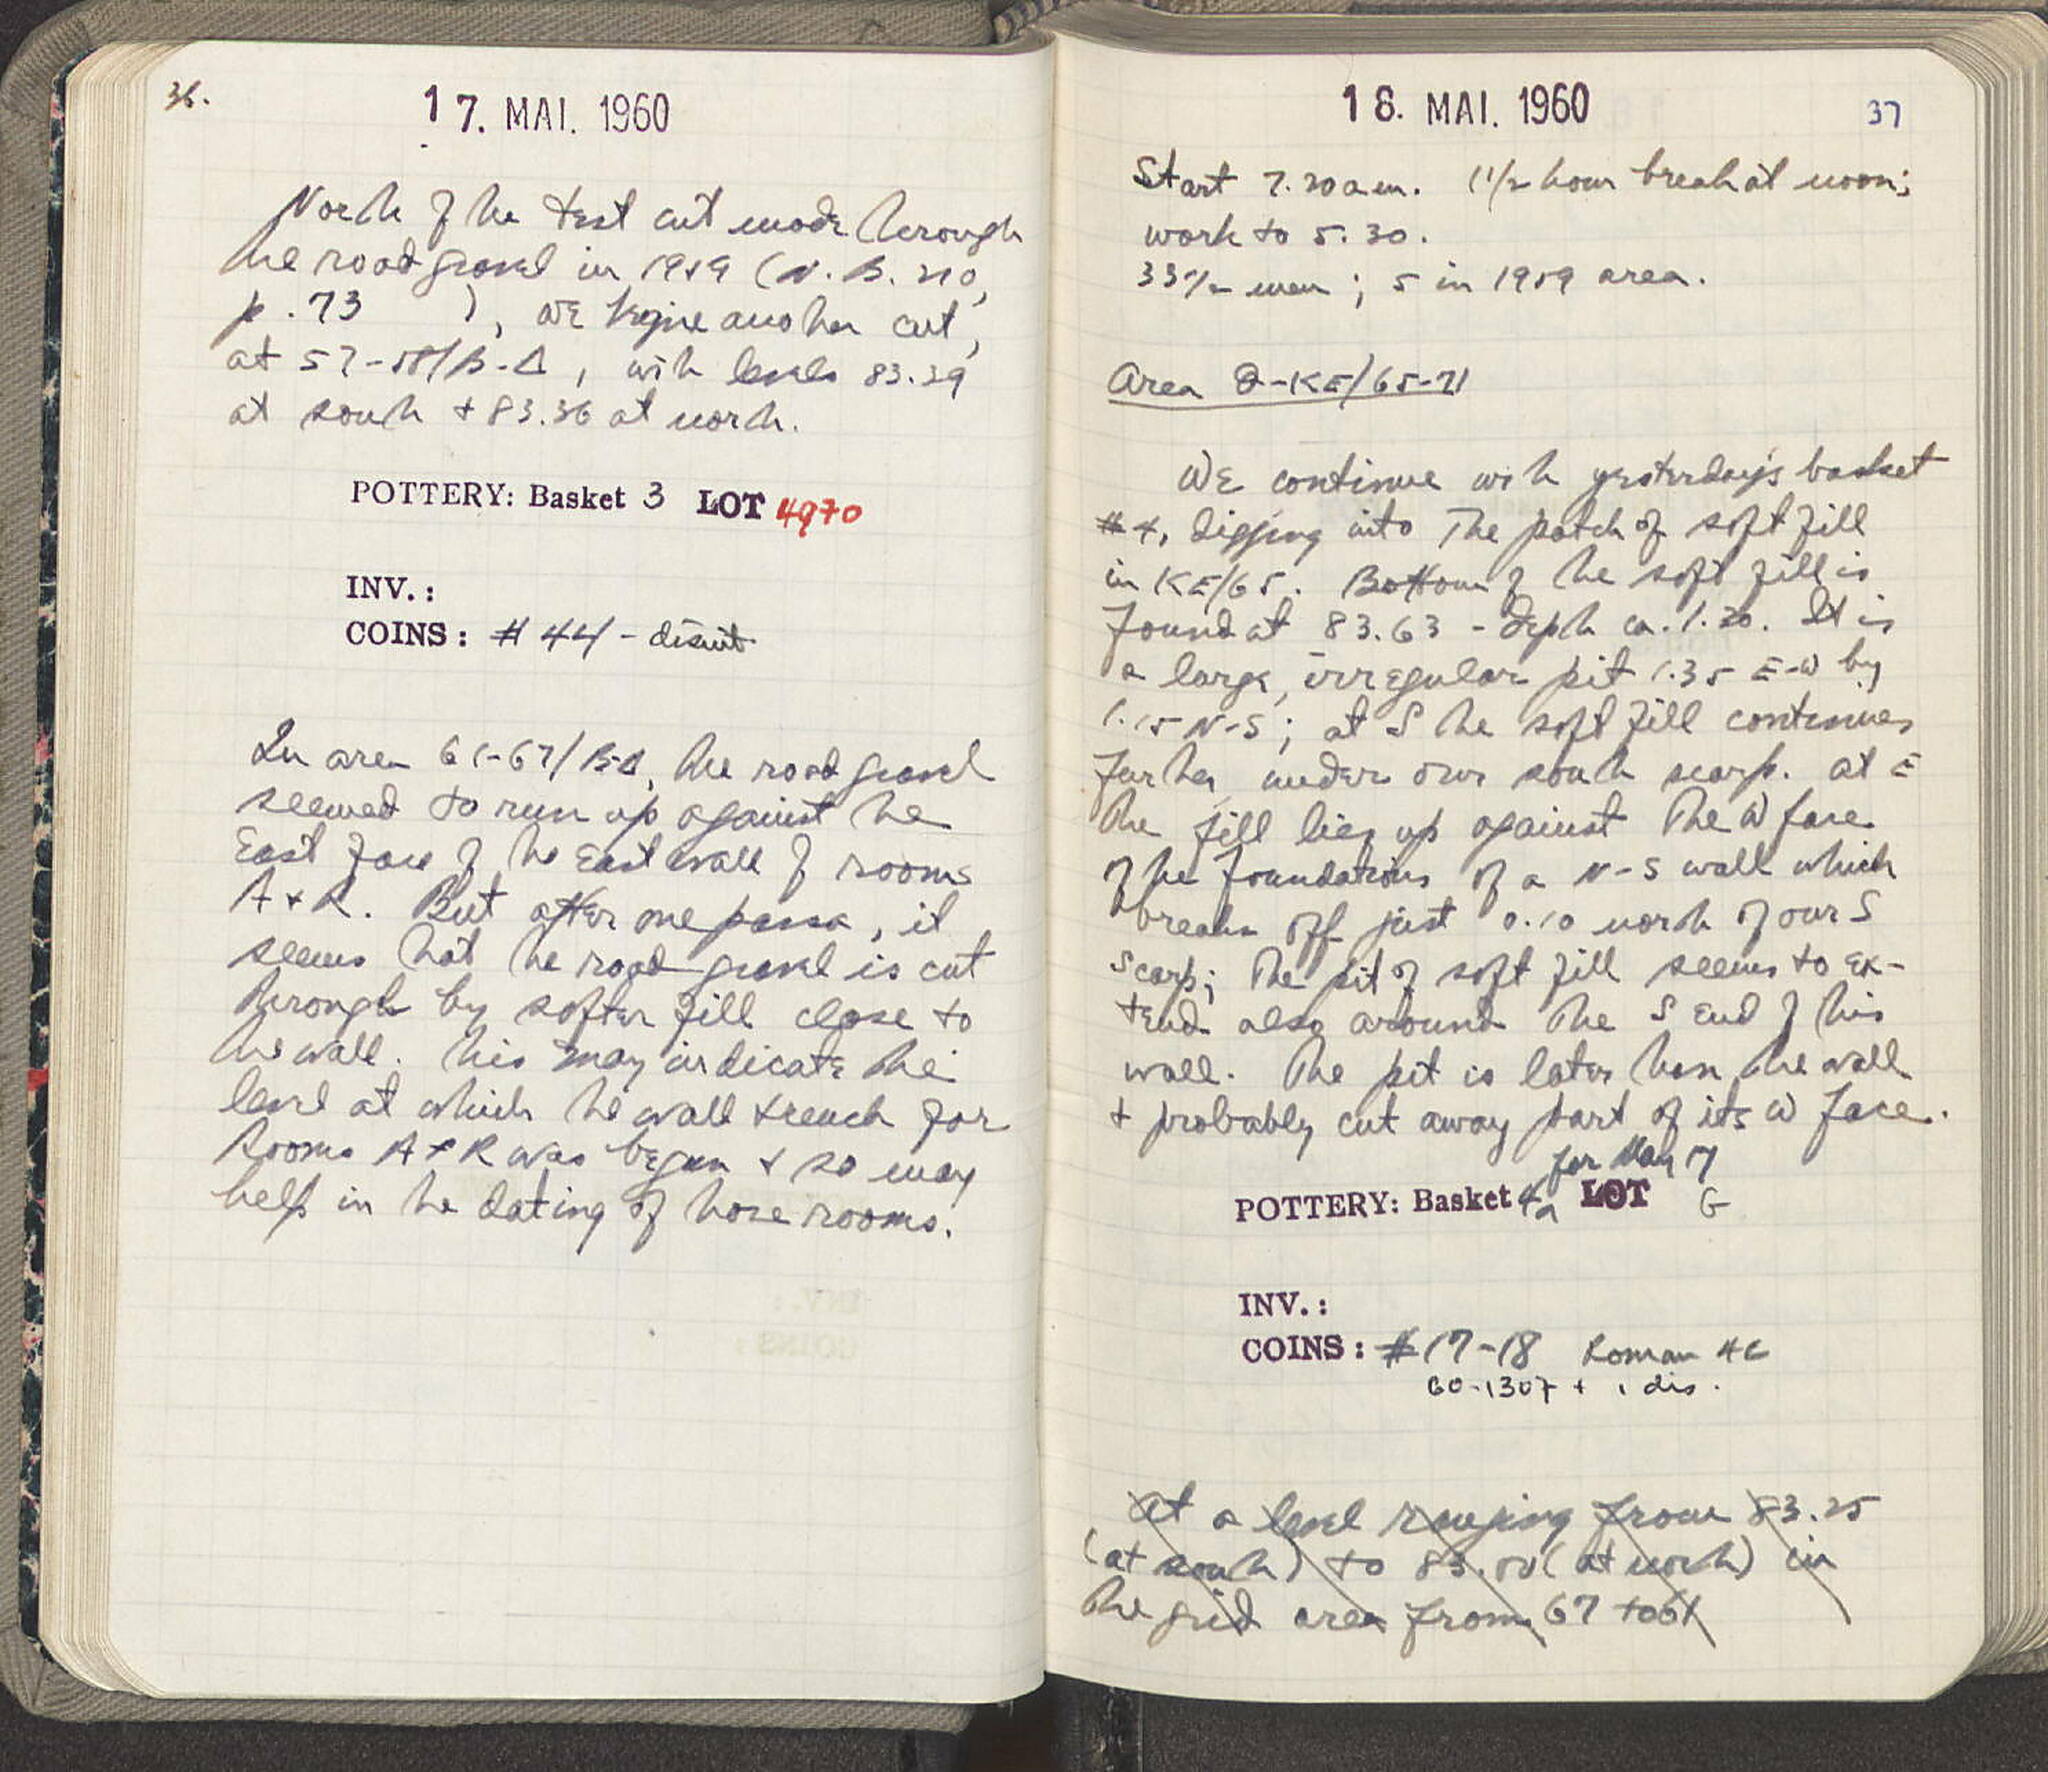 36.
17. MAI. 1960
North of the test cut made through
the road gravel in 1959 (N.B. 210,
p. 73 ), we begin another cut,
at 57-58/B-Δ, with levels 83.39
at south + 83.36 at north.
POTTERY: Basket 3 LOT 4970
INV.:
COINS: # 44 - disint.
In area 61-67/B-Δ, the road gravel
seemed to run up against the
East face of the East wall of rooms
A + R. But after one pass, it
seems that the road gravel is cut
through by softer fill close to
the wall. This may indicate the
level at which the wall trench for
Rooms A + R was begun + so may
help in the dating of those rooms.
18. MAI. 1960
37
Start 7.20 a.m. (1 1/2 hour break at noon;
work to 5.30.
33 1/2 men; 5 in 1959 area.
Area Θ-KE/65-71
We continue with yesterday's basket
#4, digging into the patch of soft fill
in KE/65. Bottom of the soft fill is
found at 83.63 - depth ca. 1.20. It is
a large, irregular pit 1.35 E-W by
1.15 N-S; at S the soft fill continues
further under our south scarp. At E
the fill lies up against the W face
of the foundations of a N-S wall which
breaks off just 0.10 north of our S
scarp; the pit of soft fill seems to ex-
tend also around the S end of this
wall. The pit is later than the wall
+ probably cut away part of its W face.
for May 17
POTTERY: Basket 4a LOT G
INV.:
COINS: # 17-18 Roman 4C
60-1307 + 1 dis.
At a level ranging from 83.25
(at south) to 83.50 (at north) in
the grid area from 67 to 61